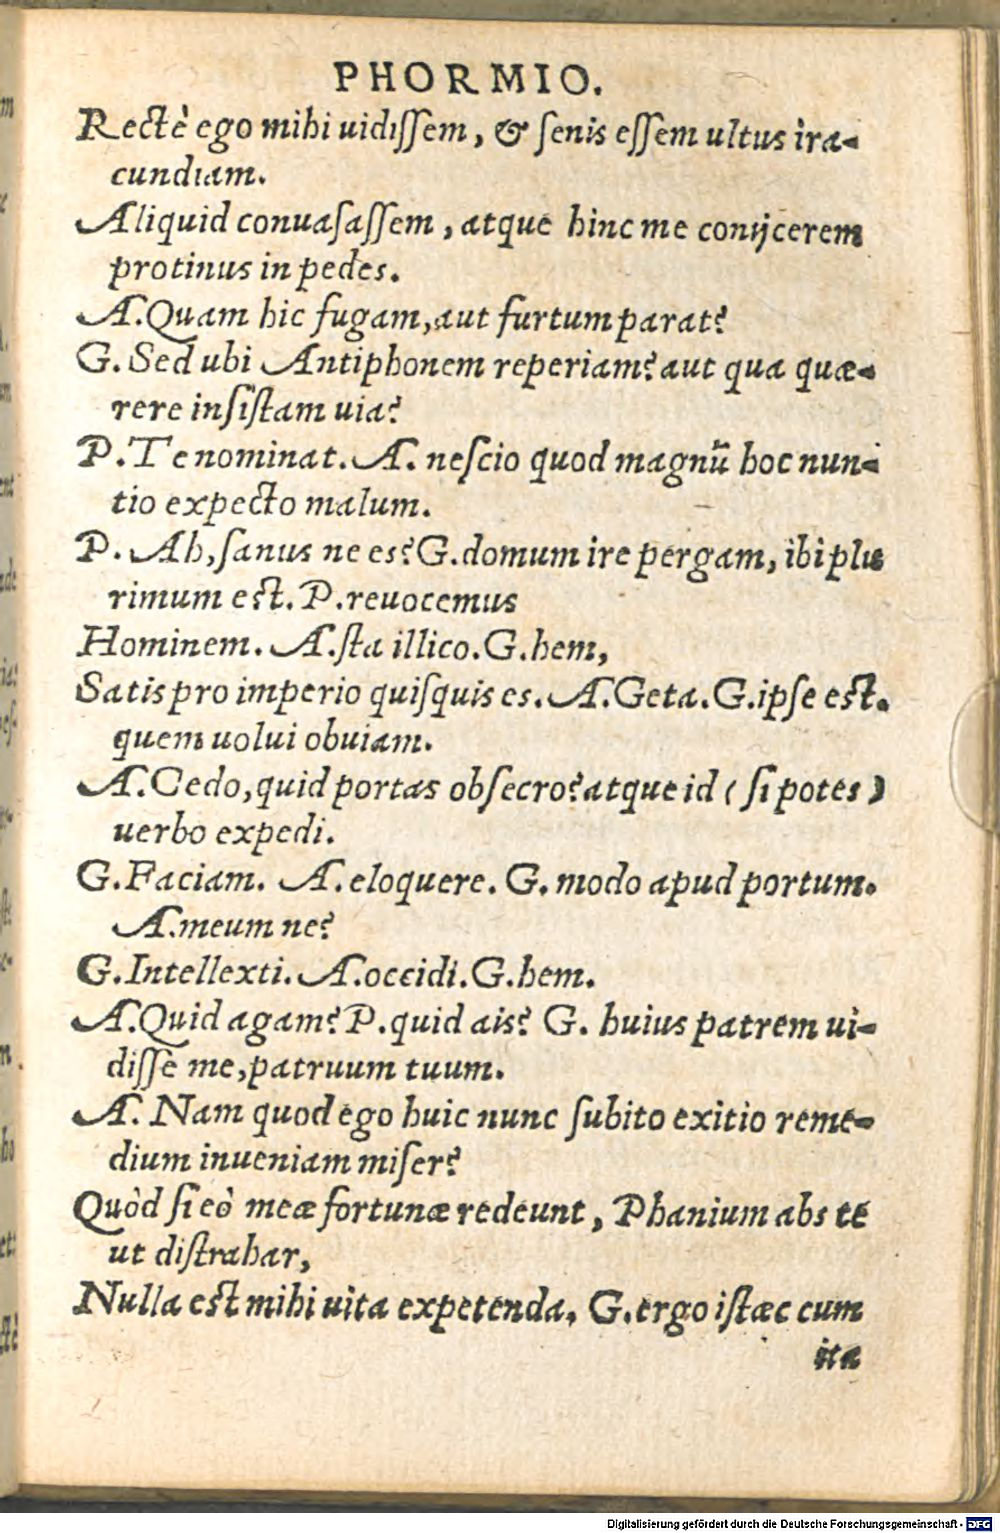 PHORMIO.
Rectè ego mihi uidissem, & senis essem ultus ira-
cundiam.
Aliquid conuasassem, atque hinc me conijcerem
protinus in pedes.
A. Quam hic fugam, aut furtum parat?
G. Sed ubi Antiphonem reperiam? aut qua quæ-
rere insistam uia?
P. Te nominat. A. nescio quod magnũ hoc nun-
tio expecto malum.
P. Ah, sanus ne es? G. domum ire pergam, ibi plu
rimum est. P. reuocemus
Hominem. A. sta illico. G. hem,
Satis pro imperio quisquis es. A. Geta. G. ipse est.
quem uolui obuiam.
A. Cedo, quid portas obsecro? atque id (si potes)
uerbo expedi.
G. Faciam. A. eloquere. G. modo apud portum.
A. meum ne?
G. Intellexti. A. occidi. G. hem.
A. Quid agam? P. quid ais? G. huius patrem ui-
disse me, patruum tuum.
A. Nam quod ego huic nunc subito exitio reme-
dium inueniam miser?
Quòd si eò meæ fortunæ redeunt, Phanium abs te
ut distrahar,
Nulla est mihi uita expetenda, G. ergo istæc cum
ita
Digitalisierung gefördert durch die Deutsche Forschungsgemeinschaft - DFG